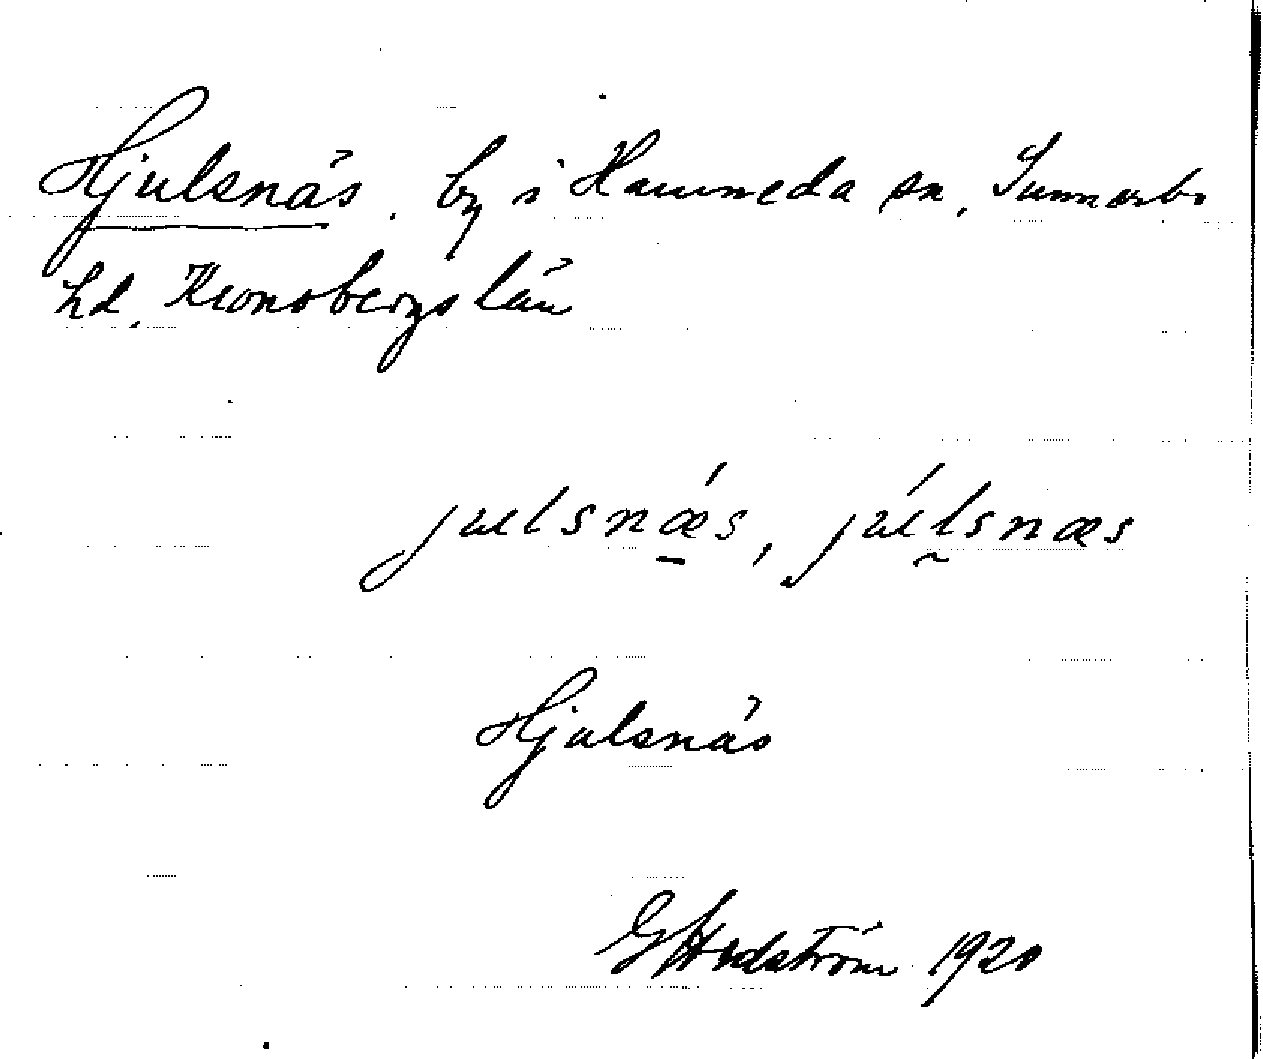 Hjulsnäs, by i Hamneda sn, Sunnerbo
hd, Kronobergs län
julsnǽs, júlsnæs
Hjulsnäs
G Hedström 1920